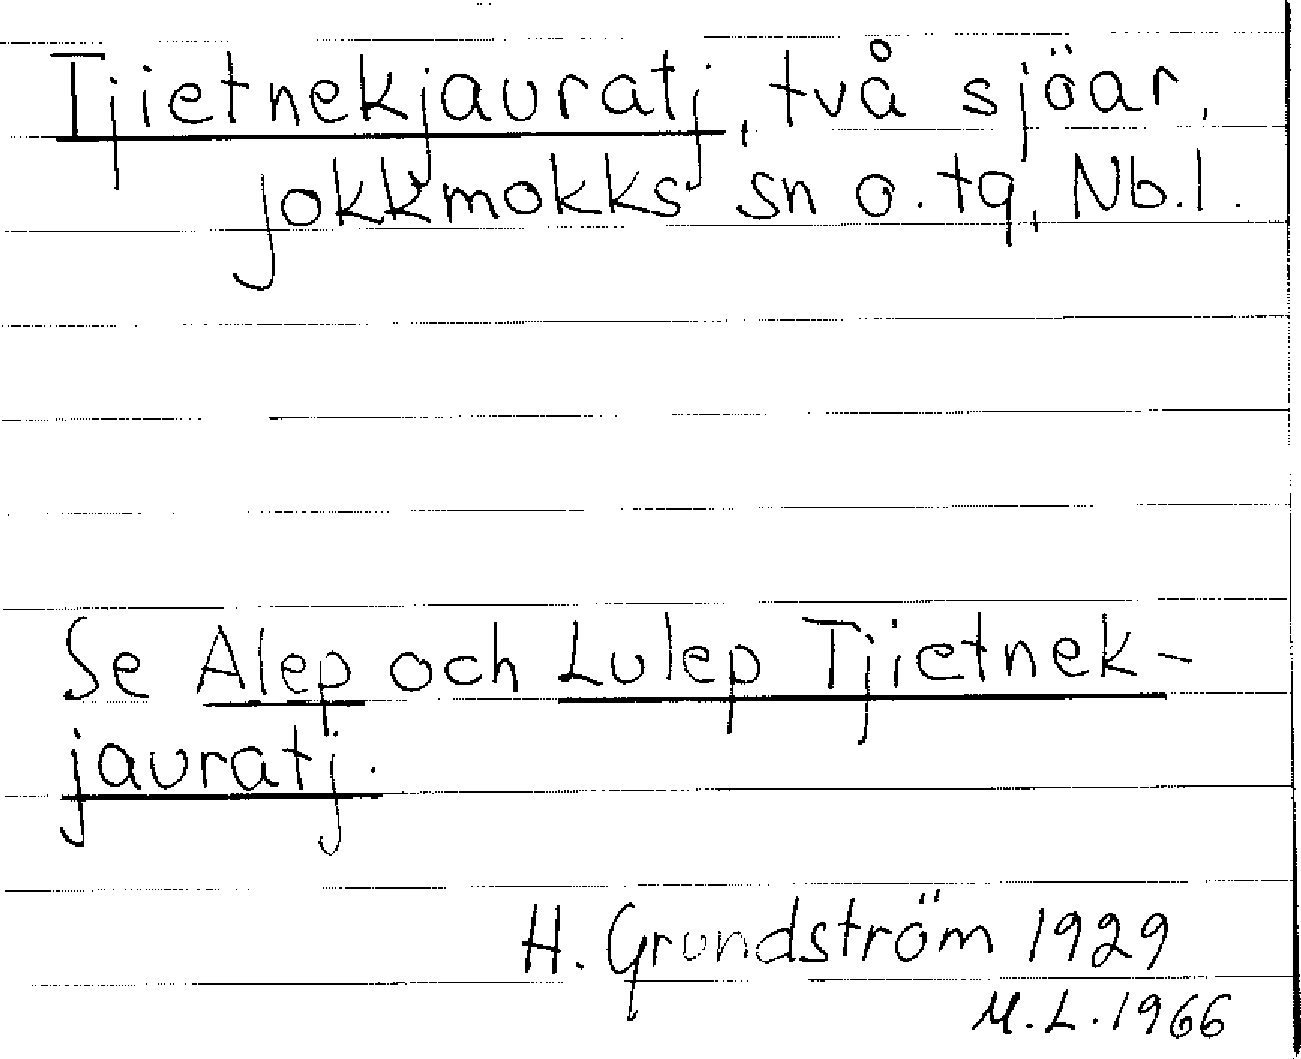 Tjietnekjauratj, två sjöar,
jokkmokks sn o. tg, Nb.l.
Se Alep och Lulep Tjietnek-
jauratj.
H. Grundström 1929
M.L. 1966